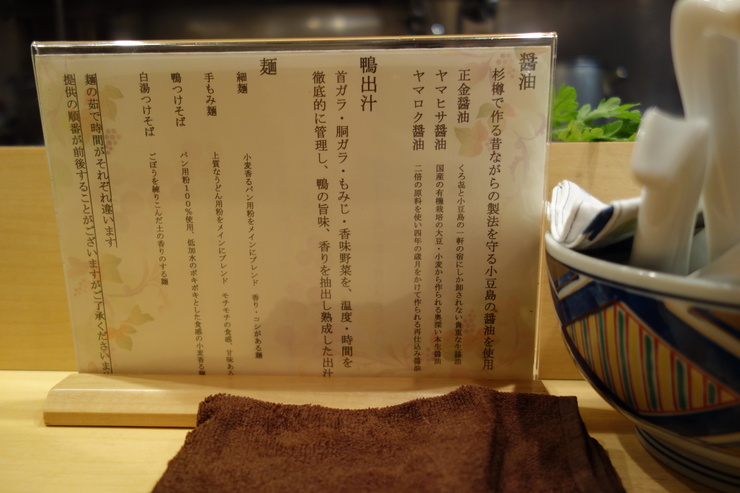 醤油
杉樽で作る昔ながらの製法を守る小豆島の醤油を使用
正金醤油 くろ㐂と小豆島の一軒の宿にしか卸されない貴重な生醤油
ヤマヒサ醤油 国産の有機栽培の大豆・小麦から作られる奥深い本生醤油
ヤマロク醤油 二倍の原料を使い四年の歳月をかけて作られる再仕込み醤油
鴨出汁
首ガラ・胴ガラ・もみじ・香味野菜を、温度・時間を
徹底的に管理し、鴨の旨味、香りを抽出し熟成した出汁
麺
細麺 小麦香るパン用粉をメインにブレンド 香り・コシがある麺
手もみ麺 上質なうどん用粉をメインにブレンド モチモチの食感、甘味ある
鴨つけそば パン用粉100%使用、低加水のポキポキとした食感の小麦香る麺
白湯つけそば ごぼうを練りこんだ土の香りのする麺
麺の茹で時間がそれぞれ違います
提供の順番が前後することがございますがご了承くださいませ